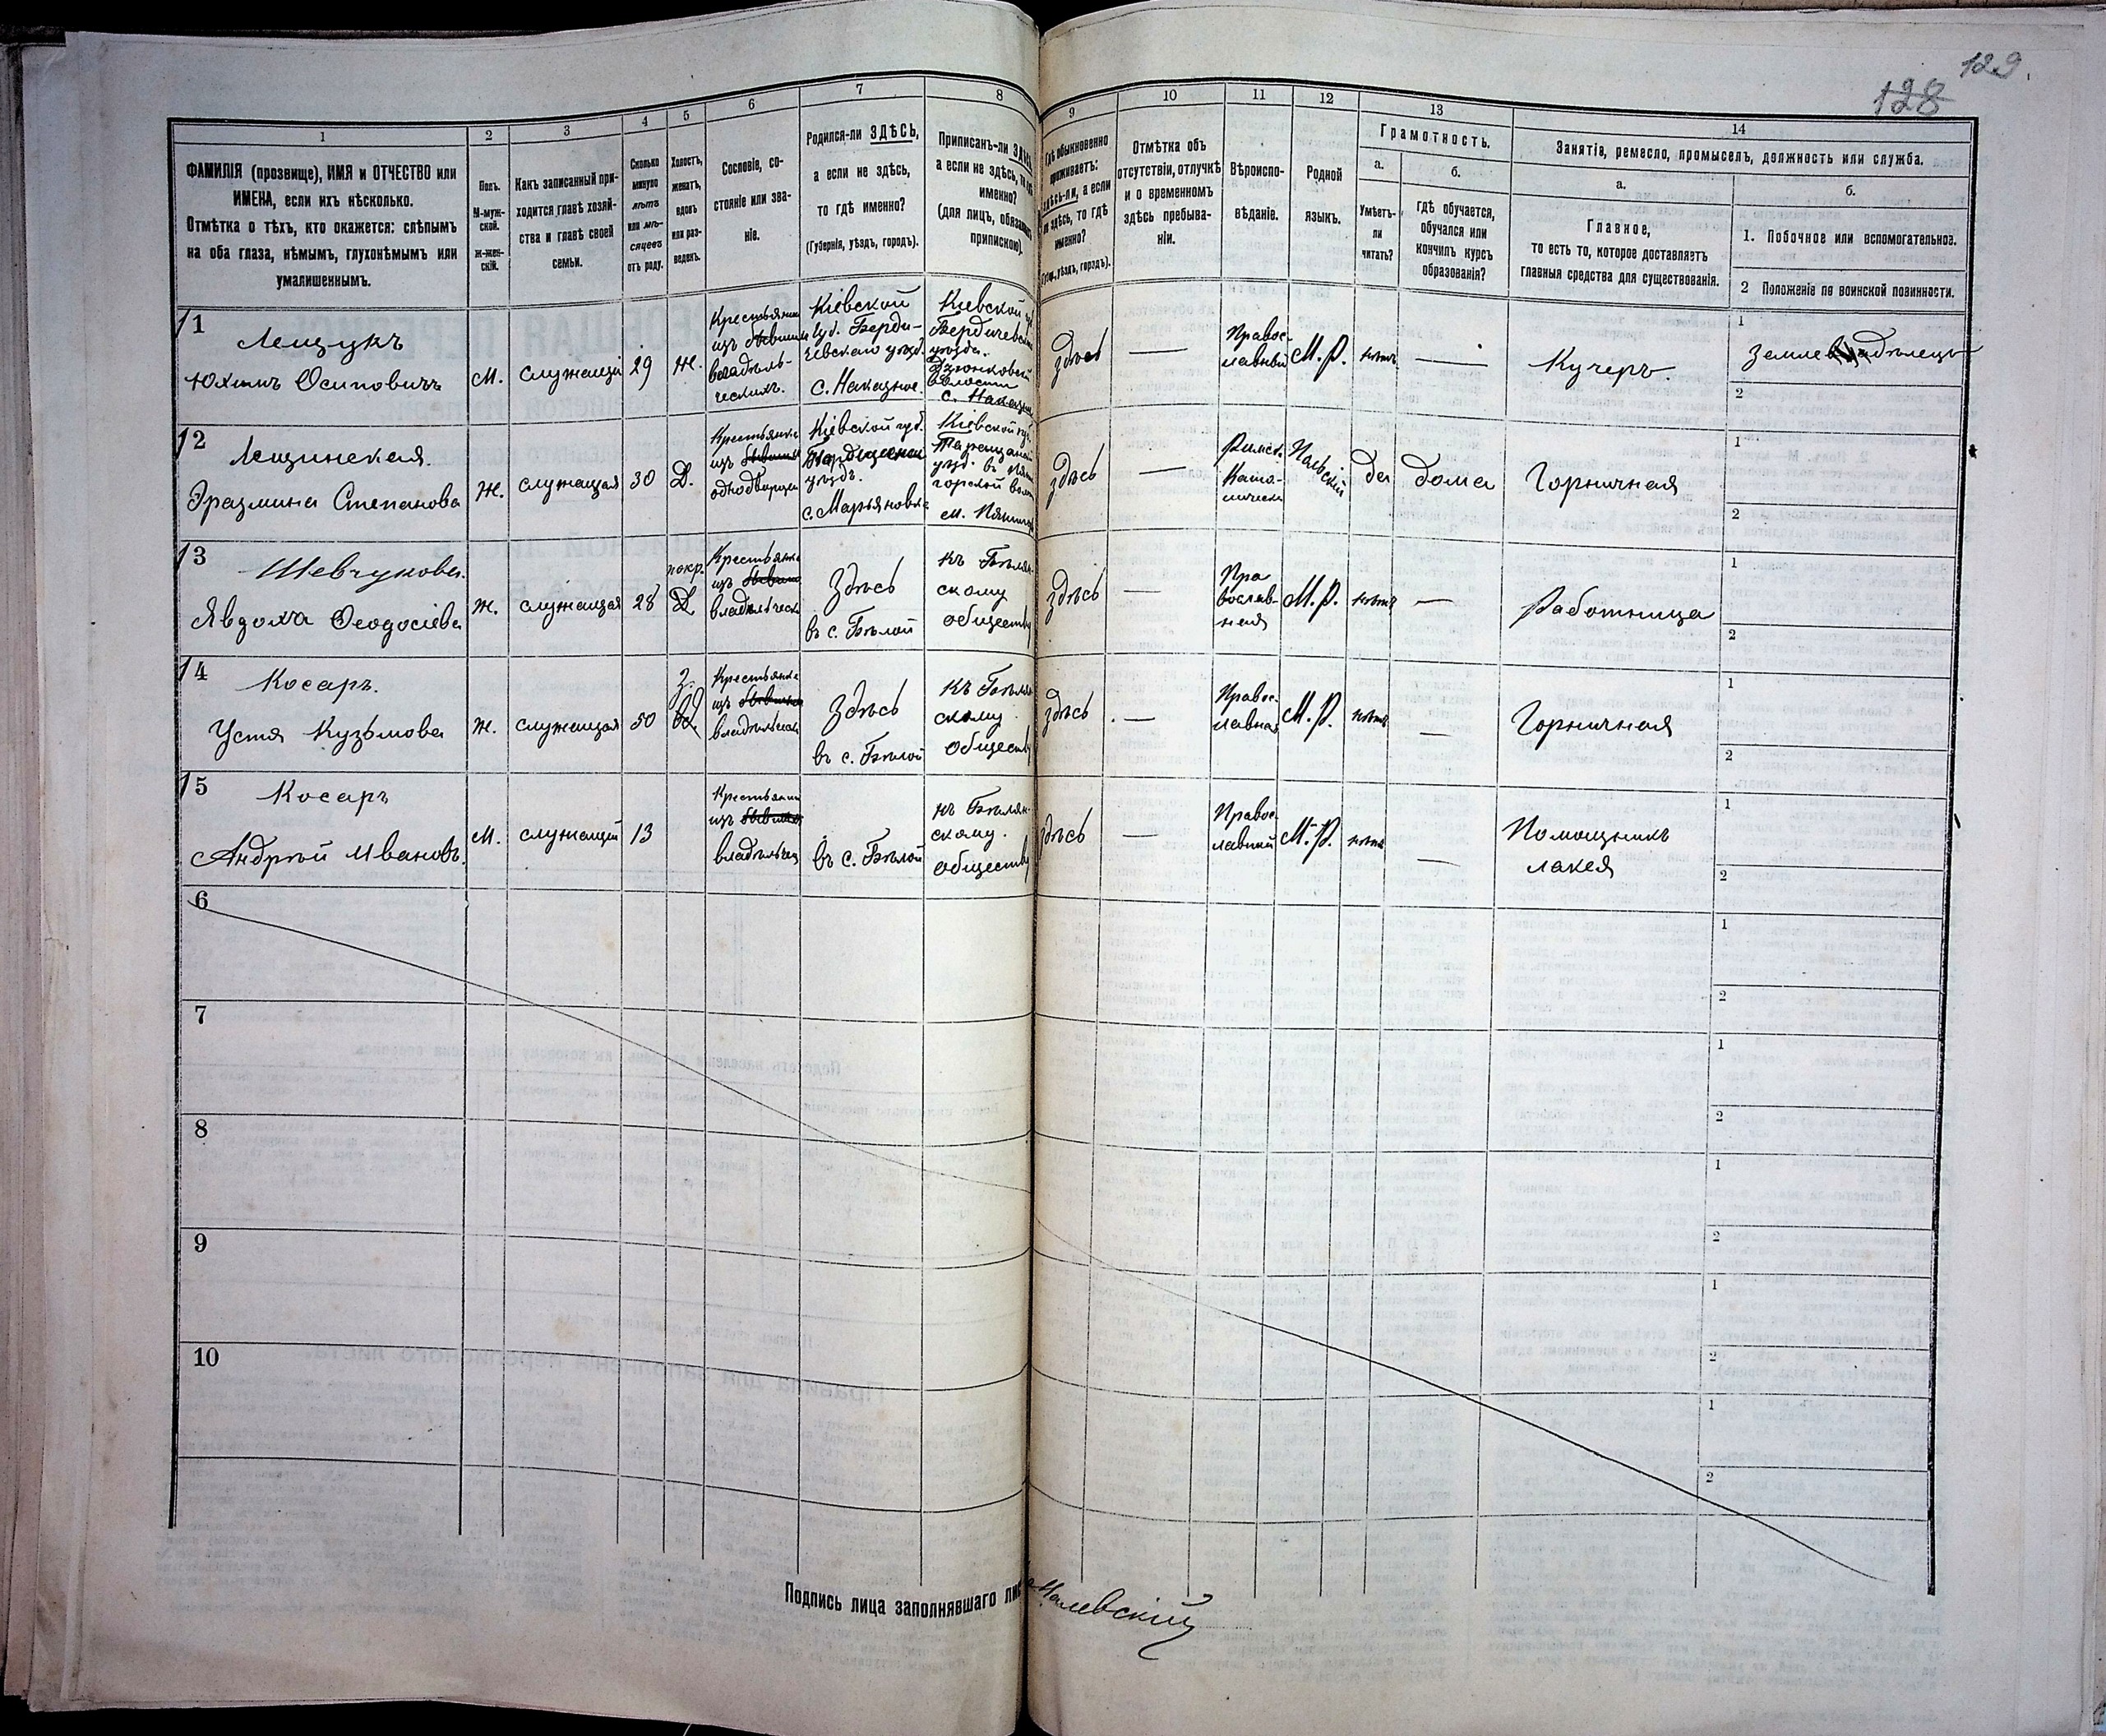 129.
128
1
2
3
4
5
6
7
8
9
10
11
12
13
14
ФАМИЛІЯ (прозвище), ИМЯ и ОТЧЕСТВО или
ИМЕНА, если ихъ нѣсколько.
Отмѣтка о тѣхъ, кто окажется: слѣпымъ
на оба глаза, нѣмымъ, глухонѣмымъ или
умалишеннымъ.
Полъ.
М-муж-
ской.
Ж-жен-
скій.
Какъ записанный при-
ходится главѣ хозяй-
ства и главѣ своей
семьи.
Сколько
минуло
лѣтъ
или мѣ-
сяцевъ
отъ роду.
Холостъ,
женатъ,
вдовъ
или раз-
веденъ.
Сословіе, со-
стояніе или зва-
ніе.
Родился-ли ЗДѢСЬ,
а если не здѣсь,
то гдѣ именно?
(Губернія, уѣздъ, городъ).
Приписанъ-ли
а если не здѣсь,
именно?
(для лицъ,
припискою).
Гдѣ обыкновенно
проживаетъ:
здѣсь-ли, а если
не здѣсь, то гдѣ
именно?
уѣздъ, городъ).
Отмѣтка объ
отсутствіи, отлучкѣ
и о временномъ
здѣсь пребыва-
ніи.
Вѣроиспо-
вѣданіе.
Родной
языкъ.
Грамотность.
а.
Умѣетъ-
ли
читать?
б.
Гдѣ обучается,
обучался или
кончилъ курсъ
образованія?
Занятія, ремесло, промыселъ, должность или служба.
а.
Главное,
то есть то, которое доставляетъ
главныя средства для существованія.
б.
1. Побочное или вспомогательное.
2 Положеніе по воинской повинности.
11
Лещукъ
Юхимъ Осиповичъ
М.
служащій
29
Ж.
Крестьянинъ
изъ бывшихъ
владѣль-
ческихъ.
Кіевской
губ. Берди-
чевскаго уѣзд.
с. Наказное.
Кіевской
Бердичевск
уѣзда.
волости
с.
здѣсь
—
Правос-
лавный
М. Р.
нѣтъ
—
Кучеръ.
1
2
12
Лещинская
Эразмина Степанова
Ж.
служащая
30
Д.
Крестьянка
изъ бывшихъ
однодворцев
Кіевской губ.
уѣздъ.
с. Марьяновка
Кіевской губ.
Таращан
м.
здѣсь
—
Римск.
Като-
лическ
Польскій
да
дома
Горничная
1
2
13
Шевчукова.
Явдоха Ѳеодосіева
Ж.
служащая
28
покр.
Д.
Крестьянка
изъ бывших
владѣльческ
Здѣсь
въ с. Бѣлой
къ Бѣлян-
скому
обществу
здѣсь
—
Пра
вослав-
ная
М. Р.
нѣтъ
—
Работница
1
2
14
Косаръ.
Устя Кузьмова
Ж.
служащая
50
З.
Крестьянка
изъ бывших
владѣльческ
Здѣсь
въ с. Бѣлой
къ Бѣлян
скому
обществу
здѣсь
—
Правос-
лавная
М. Р.
нѣтъ
—
Горничная
1
2
15
Косаръ
Андрѣй Ивановъ.
М.
служащій
13
Крестьянин
изъ бывших
владѣльчес
въ с. Бѣлой
къ Бѣлян-
скому.
обществу
здѣсь
—
Правос
лавный
М. Р.
нѣтъ
—
Помощникъ
лакея
1
2
6
1
2
7
1
2
8
1
2
9
1
2
10
1
2
Подпись лица заполнявшаго